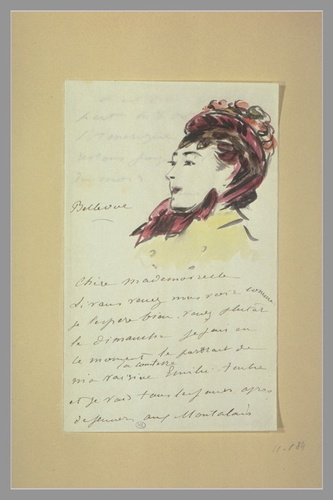 Bellevue
Chère mademoiselle
Si vous venez nous voir comme
je l'espère bien. Venez plutôt
le dimanche je fais en
ce moment le portrait de
ma voisine la comtesse Emilie
et je vais tous les jours après
déjeuner aux Montalais